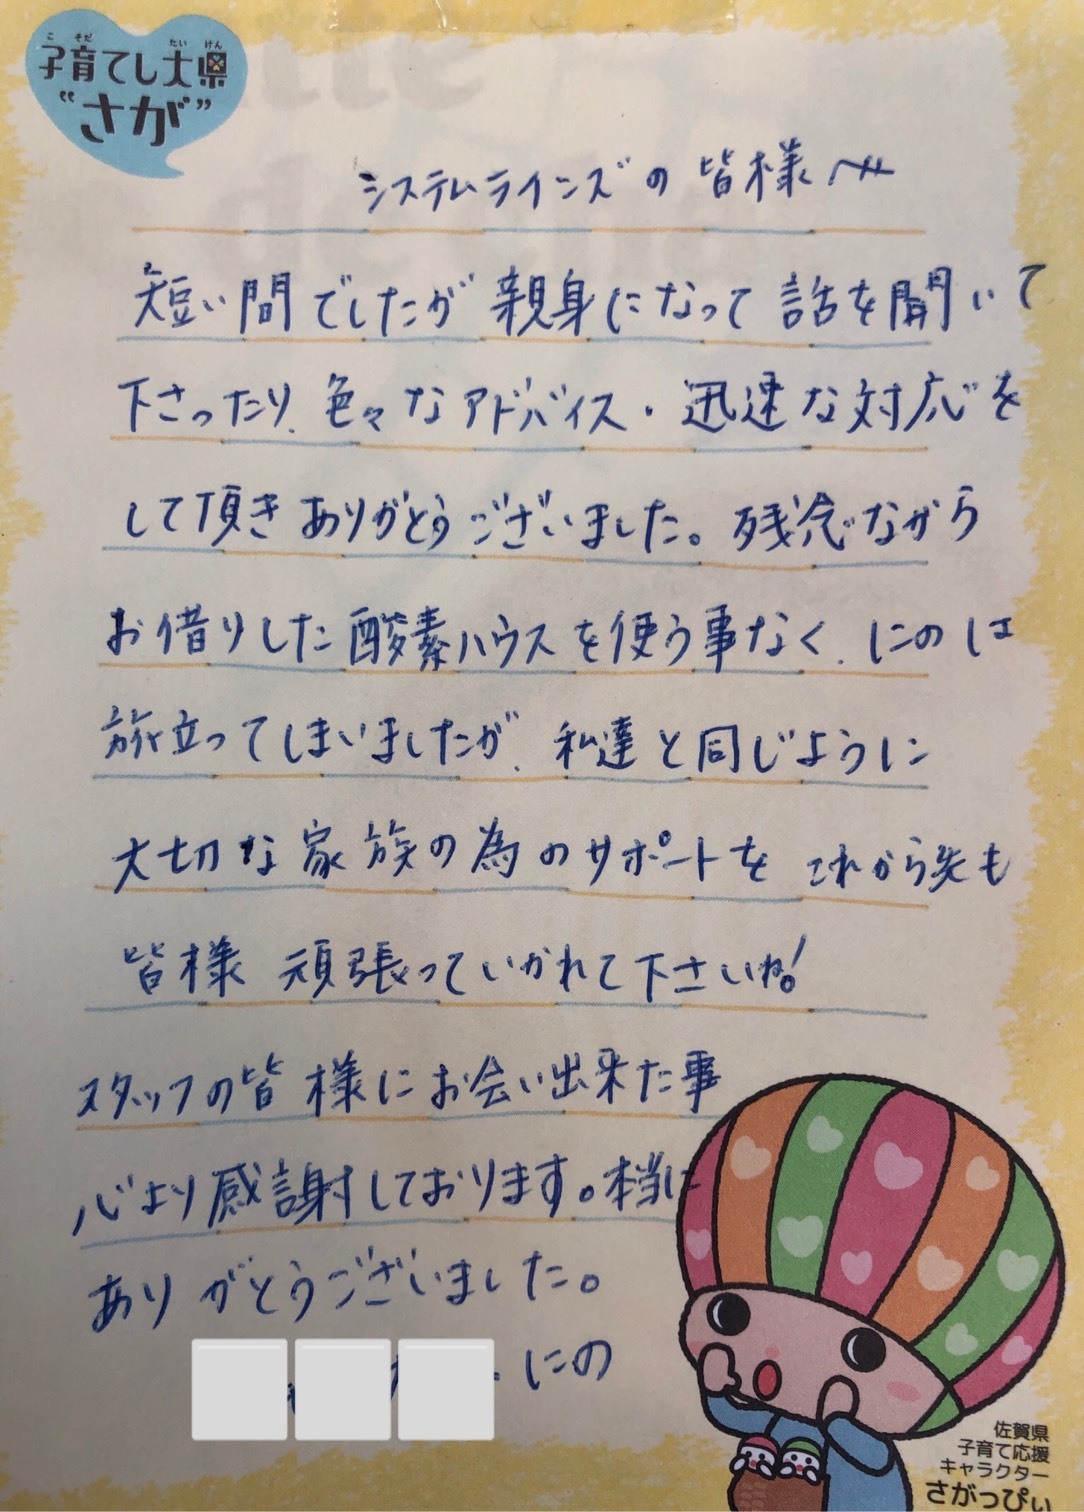 こそだ たいけん
子育てし大県
“さが”
システムラインズの皆様へ
短い間でしたが 親身になって 話を聞いて
下さったり、色々なアドバイス・迅速な対応を
して頂きありがとうございました。残念ながら
お借りした酸素ハウスを使う事なく、にのは
旅立ってしまいましたが、私達と同じように
大切な家族の為のサポートを これから先も
皆様 頑張っていかれて下さいね!
スタッフの皆様にお会い出来た事
心より感謝しております。本当に
ありがとうございました。
・にの
佐賀県
子育て応援
キャラクター
さがっぴぃ